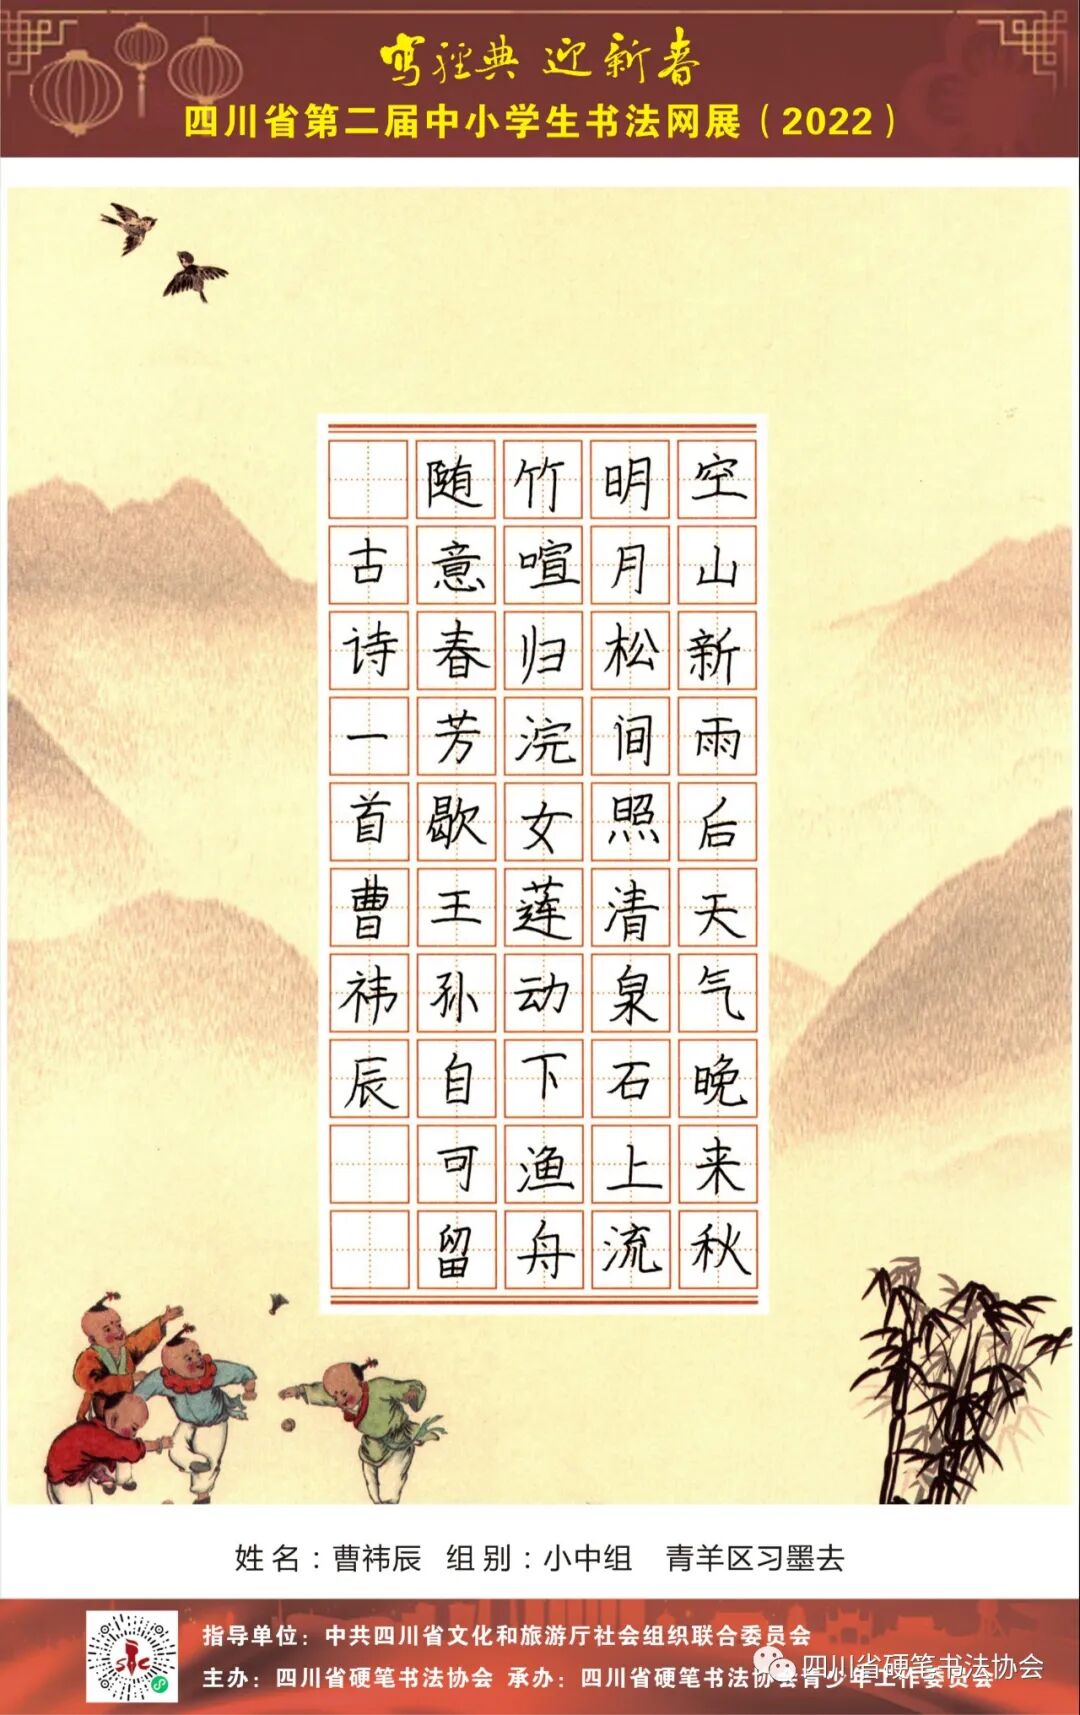 写经典 迎新春
四川省第二届中小学生书法网展（2022）
空山新雨后天气晚来秋
明月松间照清泉石上流
竹喧归浣女莲动下渔舟
随意春芳歇王孙自可留
古诗一首曹祎辰
姓名：曹祎辰 组别：小中组 青羊区习墨去
指导单位：中共四川省文化和旅游厅社会组织联合委员会
主办：四川省硬笔书法协会 承办：四川省硬笔书法协会青少年工作委员会
四川省硬笔书法协会